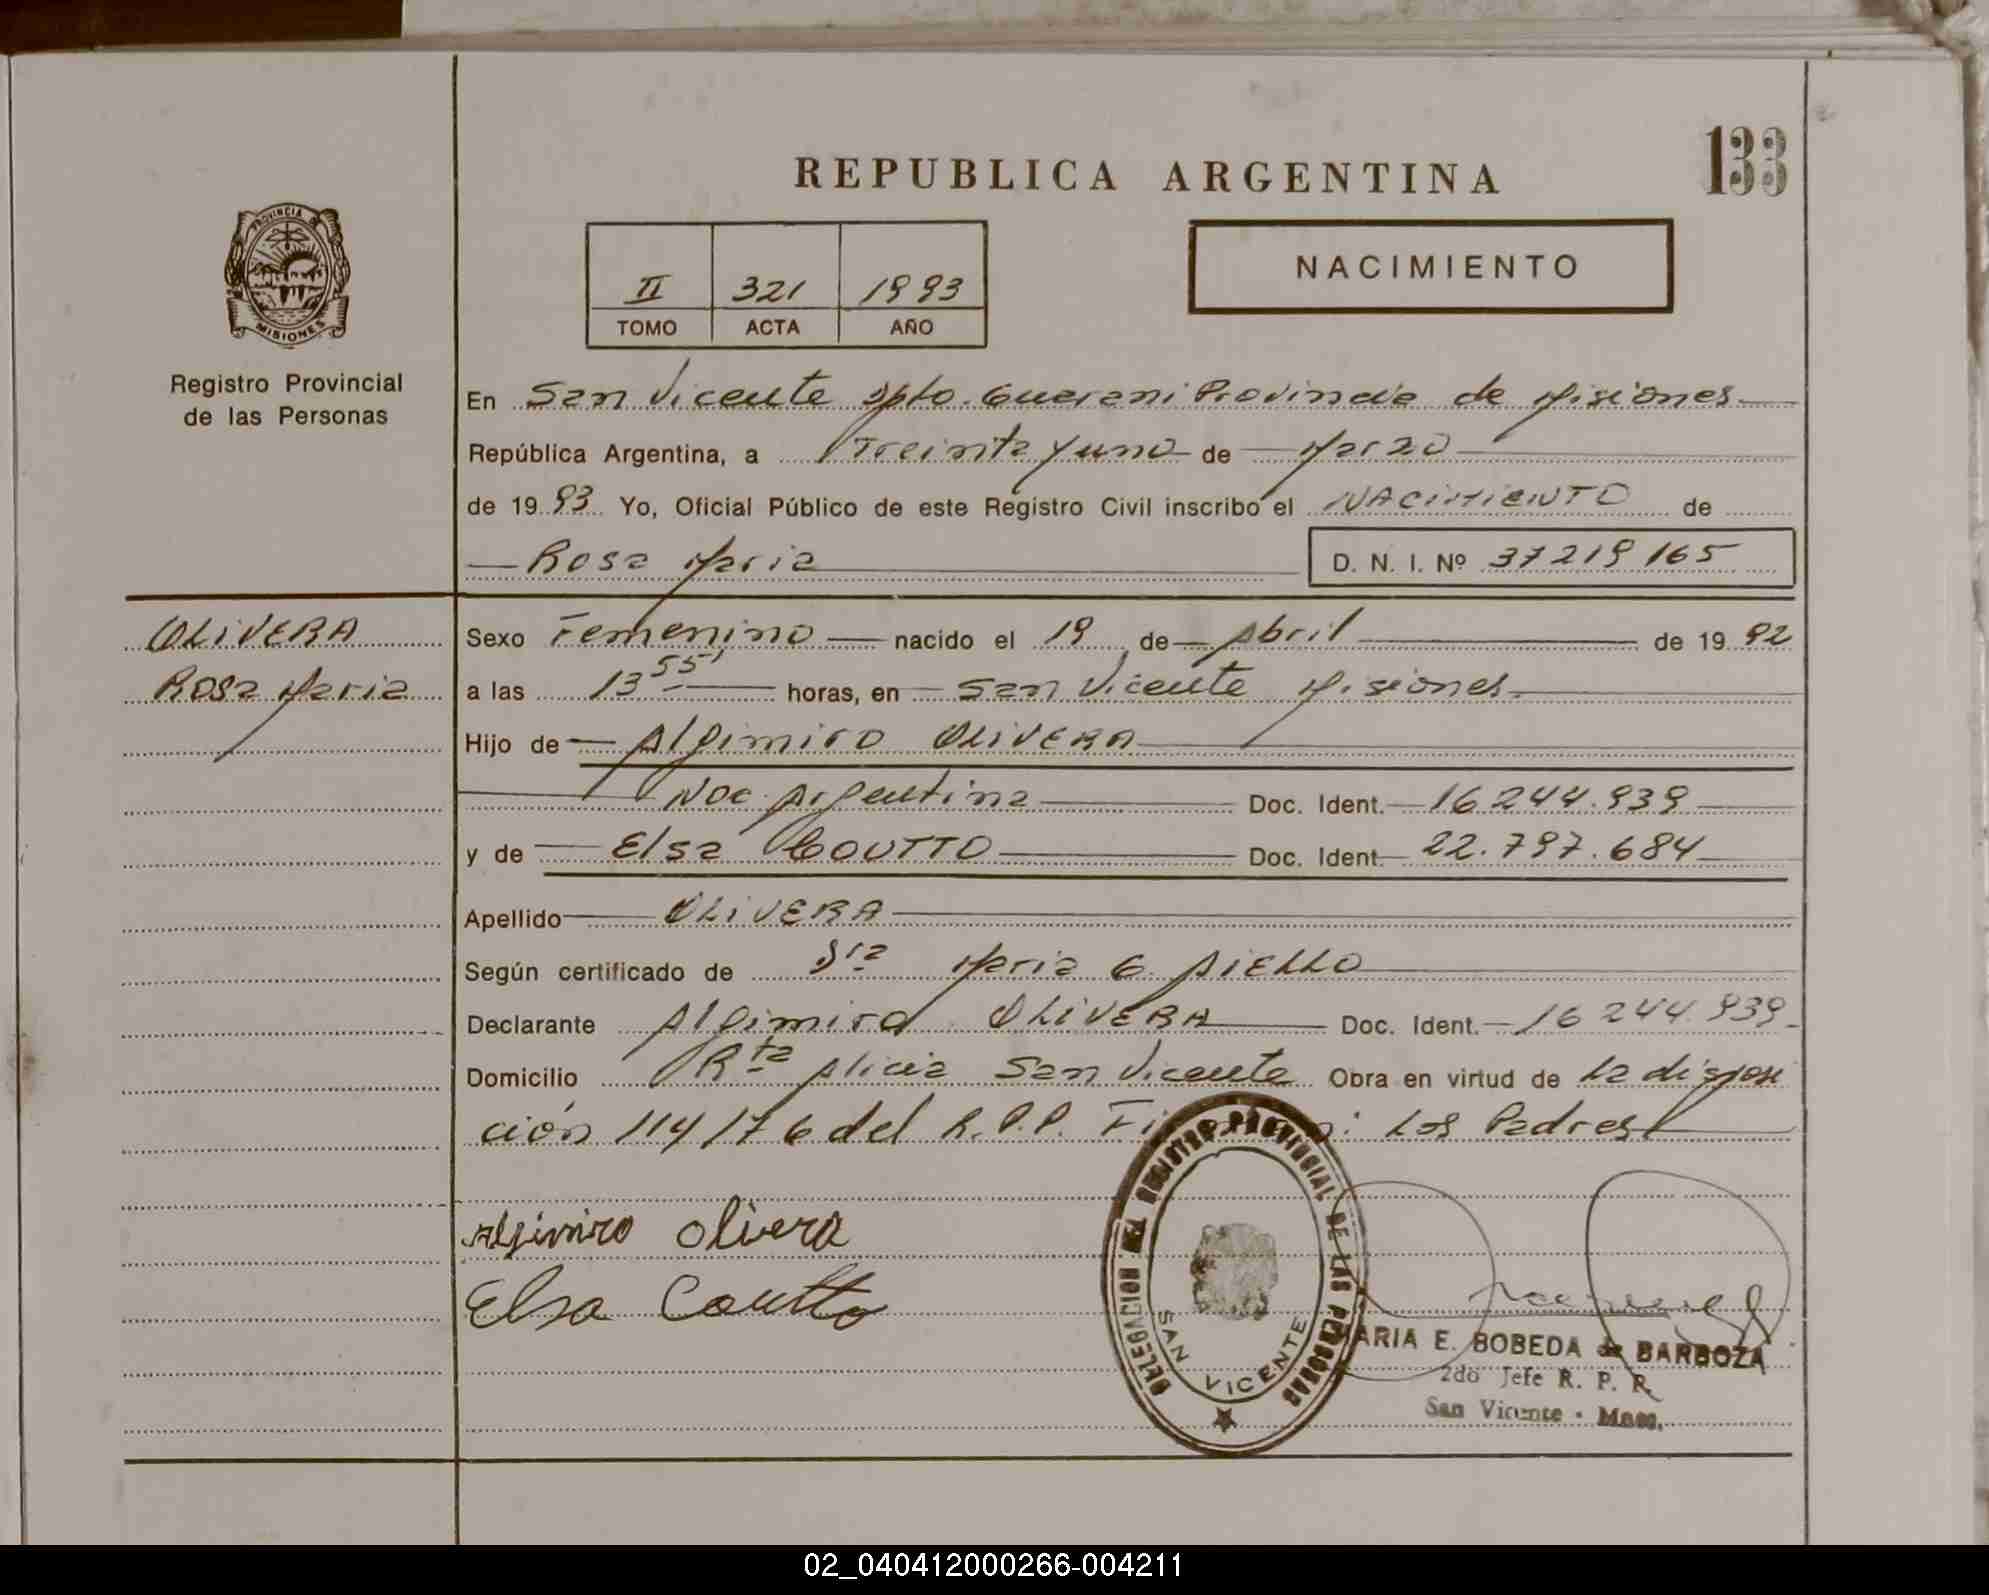 133
REPUBLICA ARGENTINA
PROVINCIA DE
MISIONES
Registro Provincial
de las Personas
II 321 1993
TOMO ACTA AÑO
NACIMIENTO
En San Vicente Dpto. Guarani Provincia de Misiones
República Argentina, a Treinta y uno de Marzo
de 1993 Yo, Oficial Público de este Registro Civil inscribo el NACIMIENTO de
Rosa Maria D. N. I. Nº 37219165
OLIVERA
Rosa Maria
Sexo Femenino nacido el 19 de Abril de 1992
a las 13 55' horas, en San Vicente Misiones
Hijo de Algimiro OLIVERA
Nac. Argentina Doc. Ident. 16.244.939
y de Elsa COUTTO Doc. Ident. 22.797.684
Apellido OLIVERA
Según certificado de Dra Maria G. AIELLO
Declarante Algimiro OLIVERA Doc. Ident. 16.244.939
Domicilio Rta Alicia San Vicente Obra en virtud de La disposi
ción 114/76 del R.P.P. : Los Padres
Algimiro Olivera
Elsa Coutto
DELEGACION DEL REGISTRO PROVINCIAL DE LAS PERSONAS
SAN VICENTE
MARIA E. BOBEDA de BARBOZA
2do Jefe R. P. P.
San Vicente - Mnes.
02_040412000266-004211